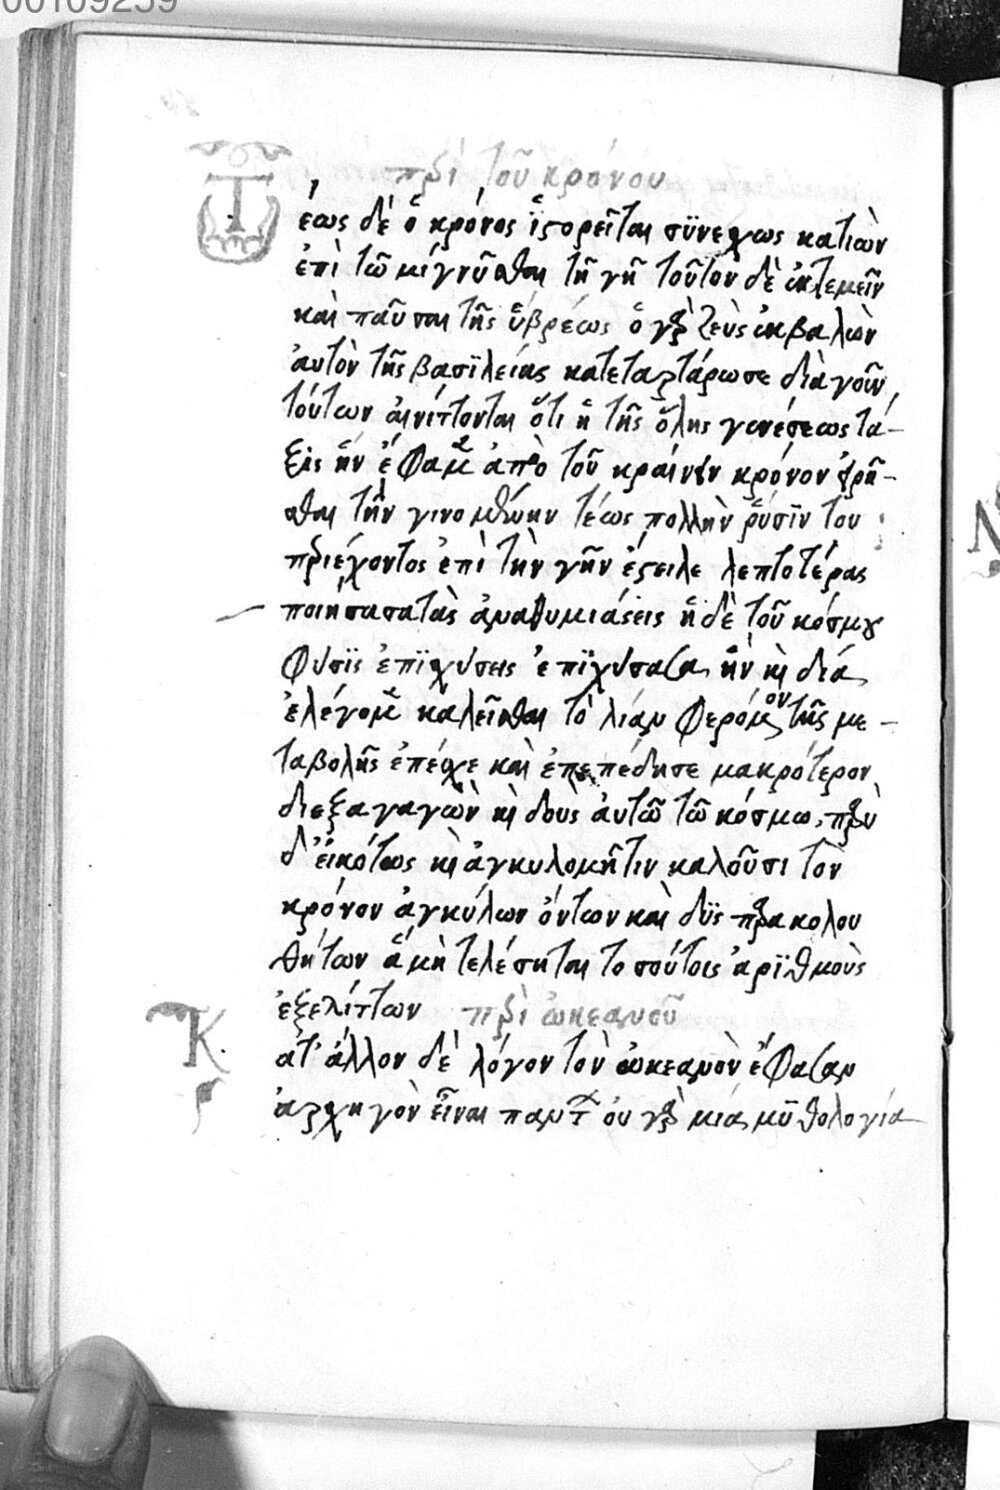 00109259
περὶ τοῦ κρόνου
Τέως δὲ ὁ κρόνος ἱστορεῖται συνεχῶς κατιὼν
ἐπὶ τῶ μίγνυσθαι τῆ γῆ τοῦτον δὲ ἐκτεμεῖν
καὶ παῦσαι τῆς ὕβρέως ὁ γὰρ ζεὺς ἐκβαλὼν
ἀυτὸν τῆς βασϊλείας κατεταρτάρωσε διὰ γοῦν
τούτων ἀινίττονται ὅτι ἡ τῆς ὅλης γενέσεως τά-
ξις ἣν ἔφαμεν ἀπὸ τοῦ κραίνειν κρόνον ἐιρῆ-
σθαι τὴν γινομένην τέως πολλὴν ῥύσϊν τοῦ
περιέχοντος ἐπὶ τὴν γῆν ἔστειλε λεπτοτέρας
ποιήσασα τὰς ἀναθυμιάσεις ἡ δὲ τοῦ κόσμου
φύσϊς ἐπϊχύσεις ἐπϊχύσασα ἣν καὶ δία
ἐλέγομεν καλεῖσθαι τὸ λίαν φερόμενον τῆς με-
ταβολῆς ἐπέχε καὶ ἐπεπέδησε μακρότερον
διεξαγαγὼν καὶ δοὺς ἀυτῶ τῶ κόσμω, πάνυ
δ' εἰκότως καὶ ἀγκυλομῆτιν καλοῦσι τὸν
κρόνον ἀγκύλων ὄντων καὶ δϋς παρακολου
θήτων ἃ μὴ τελέσηται τοσούτοις ἀρϊθμοὺς
ἐξελίττων περὶ ὠκεανοῦ
Κατ' ἄλλον δὲ λόγον τὸν ὠκεανὸν ἔφασαν
ἀρχηγὸν εἶναι πάντων οὐ γὰρ μία μϋθολογία